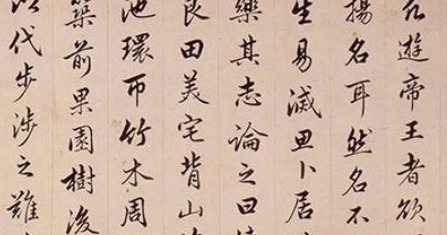 凡遊帝王者欲
揚名耳然名不
生易滅思卜居
樂其志論之曰
良田美宅背山
池環帀竹木周
築前果園樹後
以代步涉之難